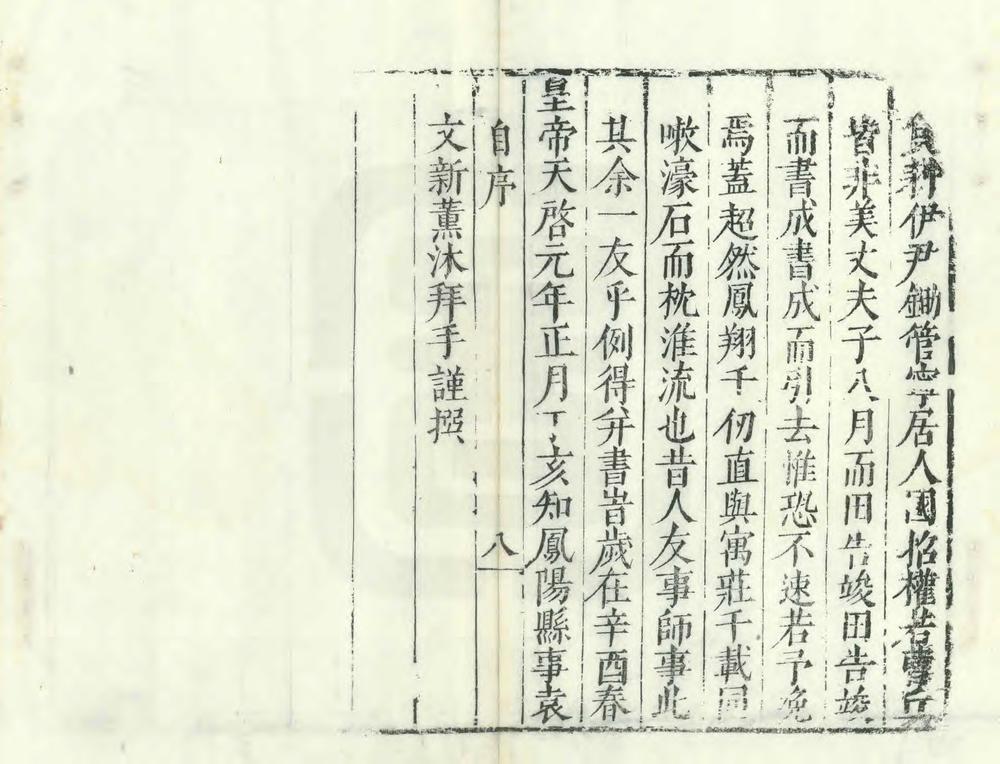 耕伊尹鋤管寧居人國招權若
皆非美丈夫子八月而田告竣田告竣
而書成書成而引去惟恐不速若予晚
焉蓋超然鳳翔千仞直與寓莊千載同
嗽濠石而枕淮流也昔人友事師事此
其余一友乎例得弁書首歲在辛酉春
皇帝天啓元年正月丁亥知鳳陽縣事袁
自序 八
文新薰沐拜手謹撰